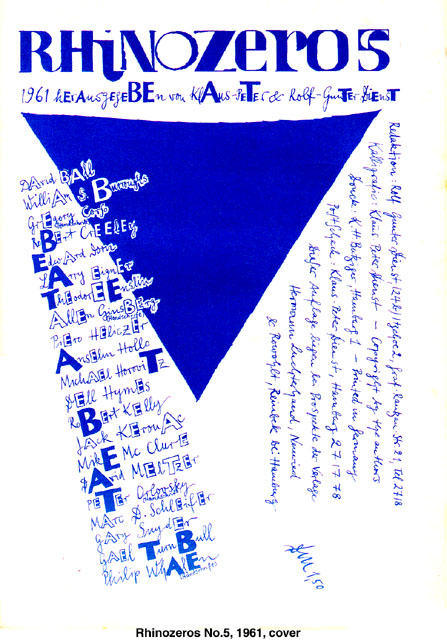 RHiNOZEROS 5
1961 herausgegeben von Klaus-Peter & Rolf-Gunter Dienst
David Ball
William S. Burroughs
Gregory Corso
Robert Creeley
Edward Dorn
Larry Eigner
Theodore Enslin
Allen Ginsberg
Piero Heliczer
Anselm Hollo
Michael Horovitz
Dell Hymes
Robert Kelly
Jack Kerouac
Mike Mc Clure
David Meltzer
Peter Orlovsky
Marc D. Schleifer
Gary Snyder
Gael Turnbull
Philip Whalen
Redaktion: Rolf Gunter Dienst (24b) Itzehoe 2, Graf Rantzau Str. 21, Tel 2718
Kalligrafie: Klaus Peter Dienst — Copyright by the authors
Druck: Hamburg 1 — Printed in Germany
Postscheck: Klaus-Peter Dienst, Hamburg 271778
Dieser Auflage liegen den Prospekte der Verlage
Hermann Luchterhand, Neuwied
& Rowohlt, Reinbek bei Hamburg
DM 1,50
Rhinozeros No.5, 1961, cover